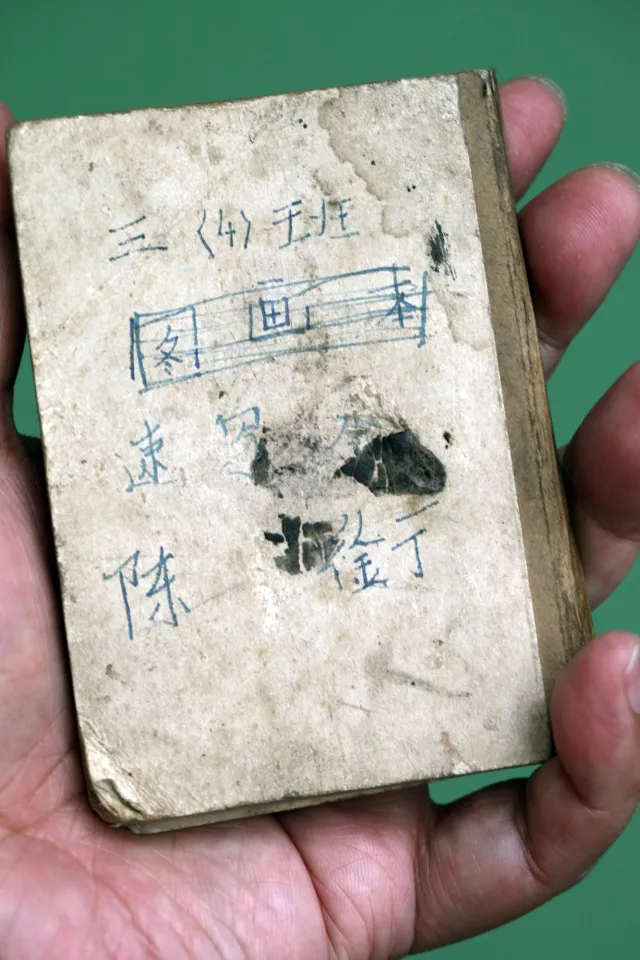 三〈4〉班
图画本
速写本
陈 衔